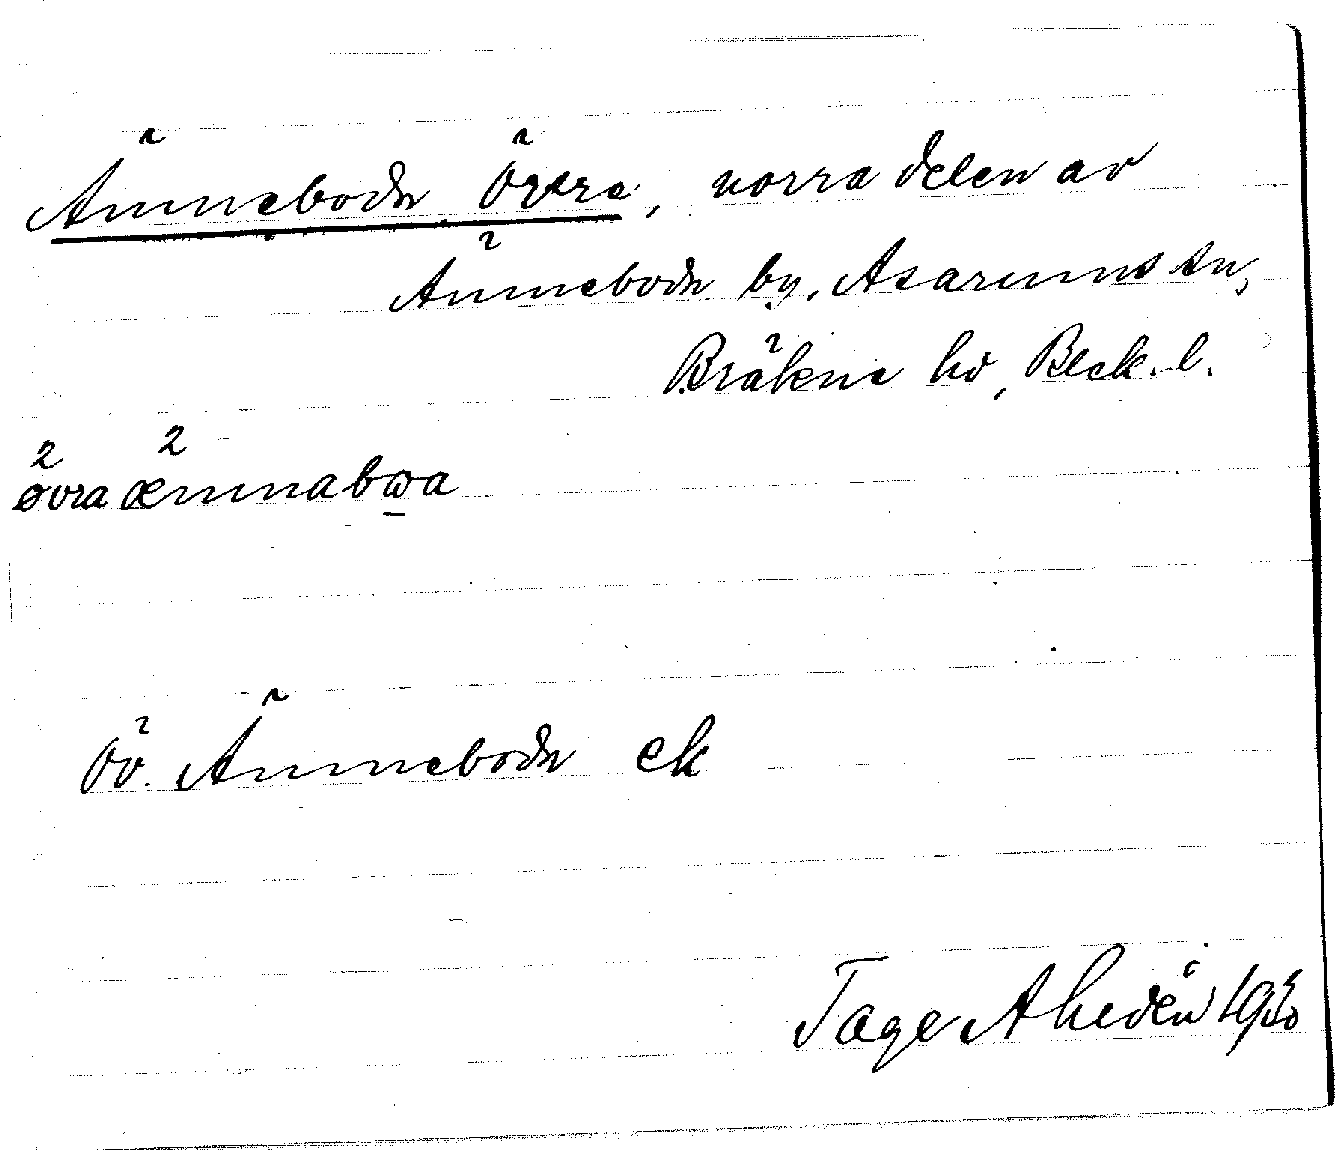 Änneboda Övre, norra delen av
Änneboda by, Asarums sn,
Bräkne hd,Blek. l.
øvra ænnabωa
Öv. Änneboda ek
Tage Ahedén 1930